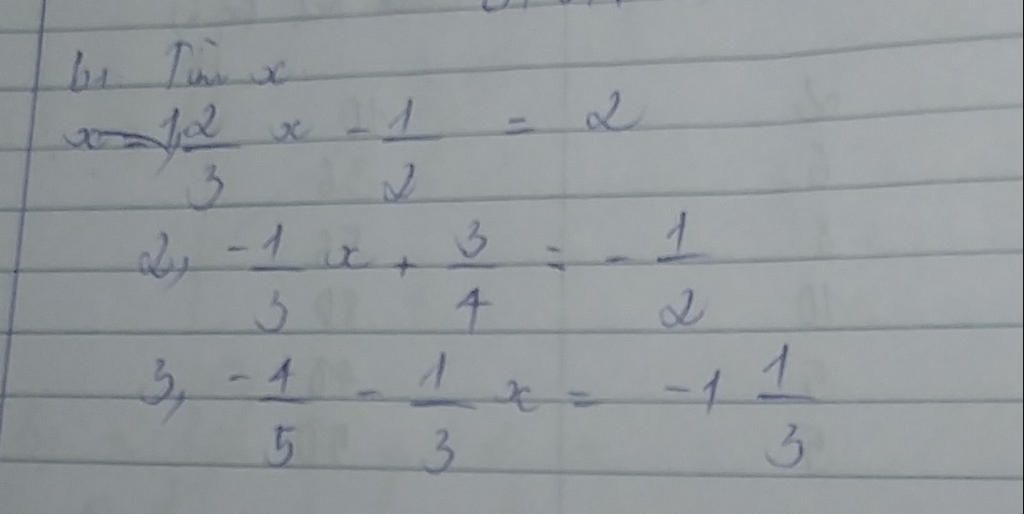 b, Tìm x
1, 2/3 x - 1/2 = 2
2, -1/3 x + 3/4 = -1/2
3, -4/5 - 1/3 x = -1 1/3